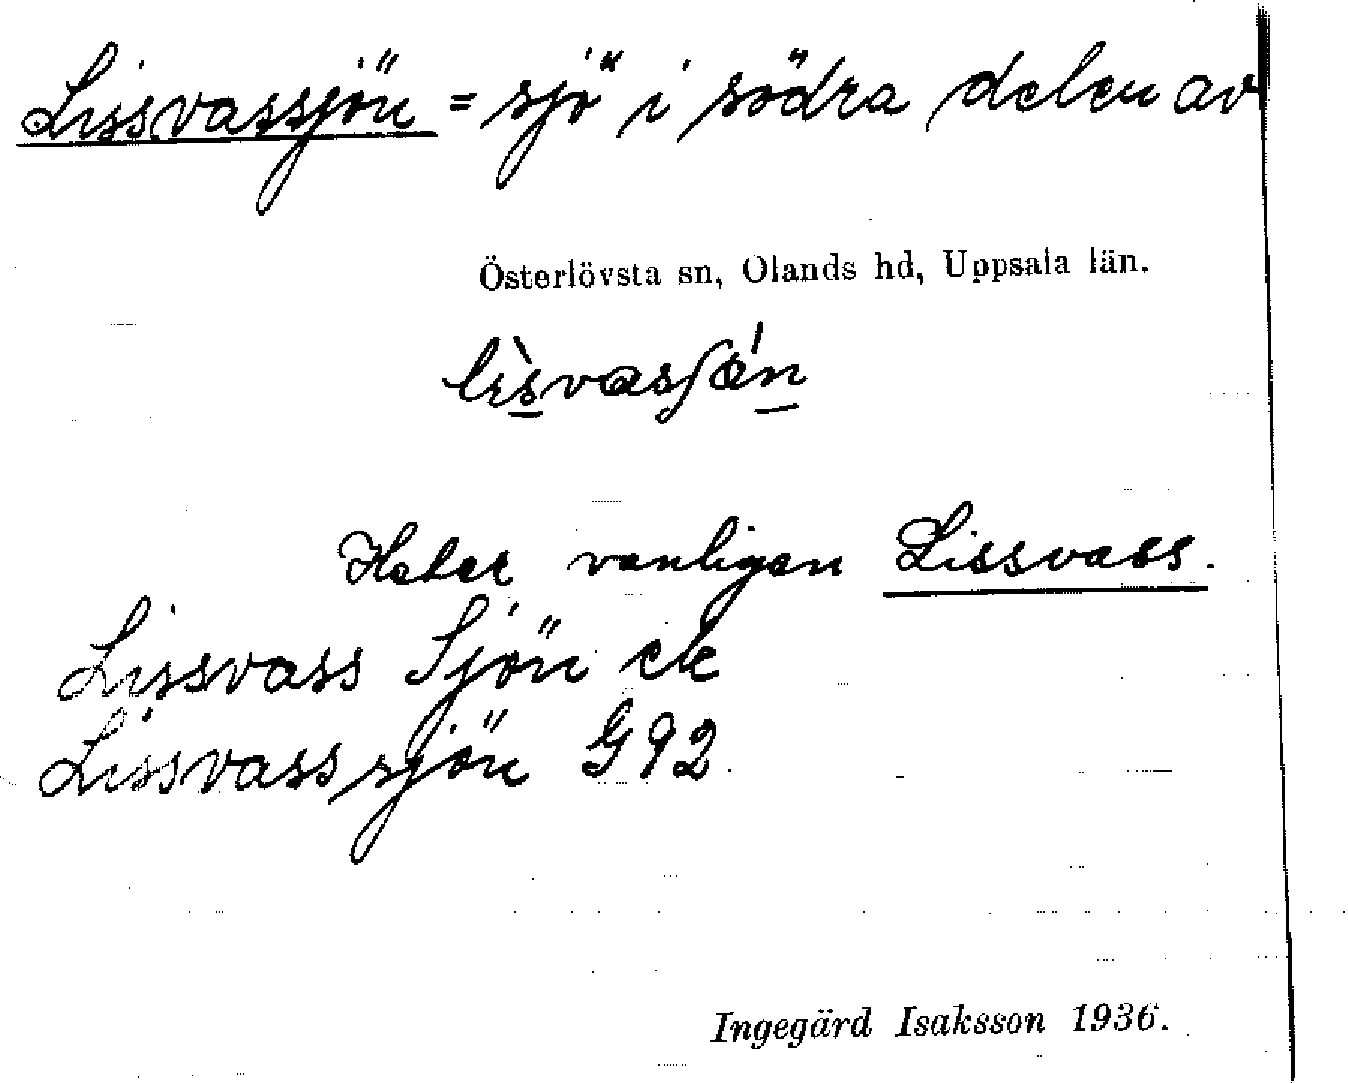 Lissvassjön = sjö i södra delen av
Österlövsta sn, Olands hd, Uppsala län.
lìsvasʃǿn
Heter vanligen Lissvass.
Lissvass Sjön ek
Lissvasssjön G92
Ingegärd Isaksson 1936.